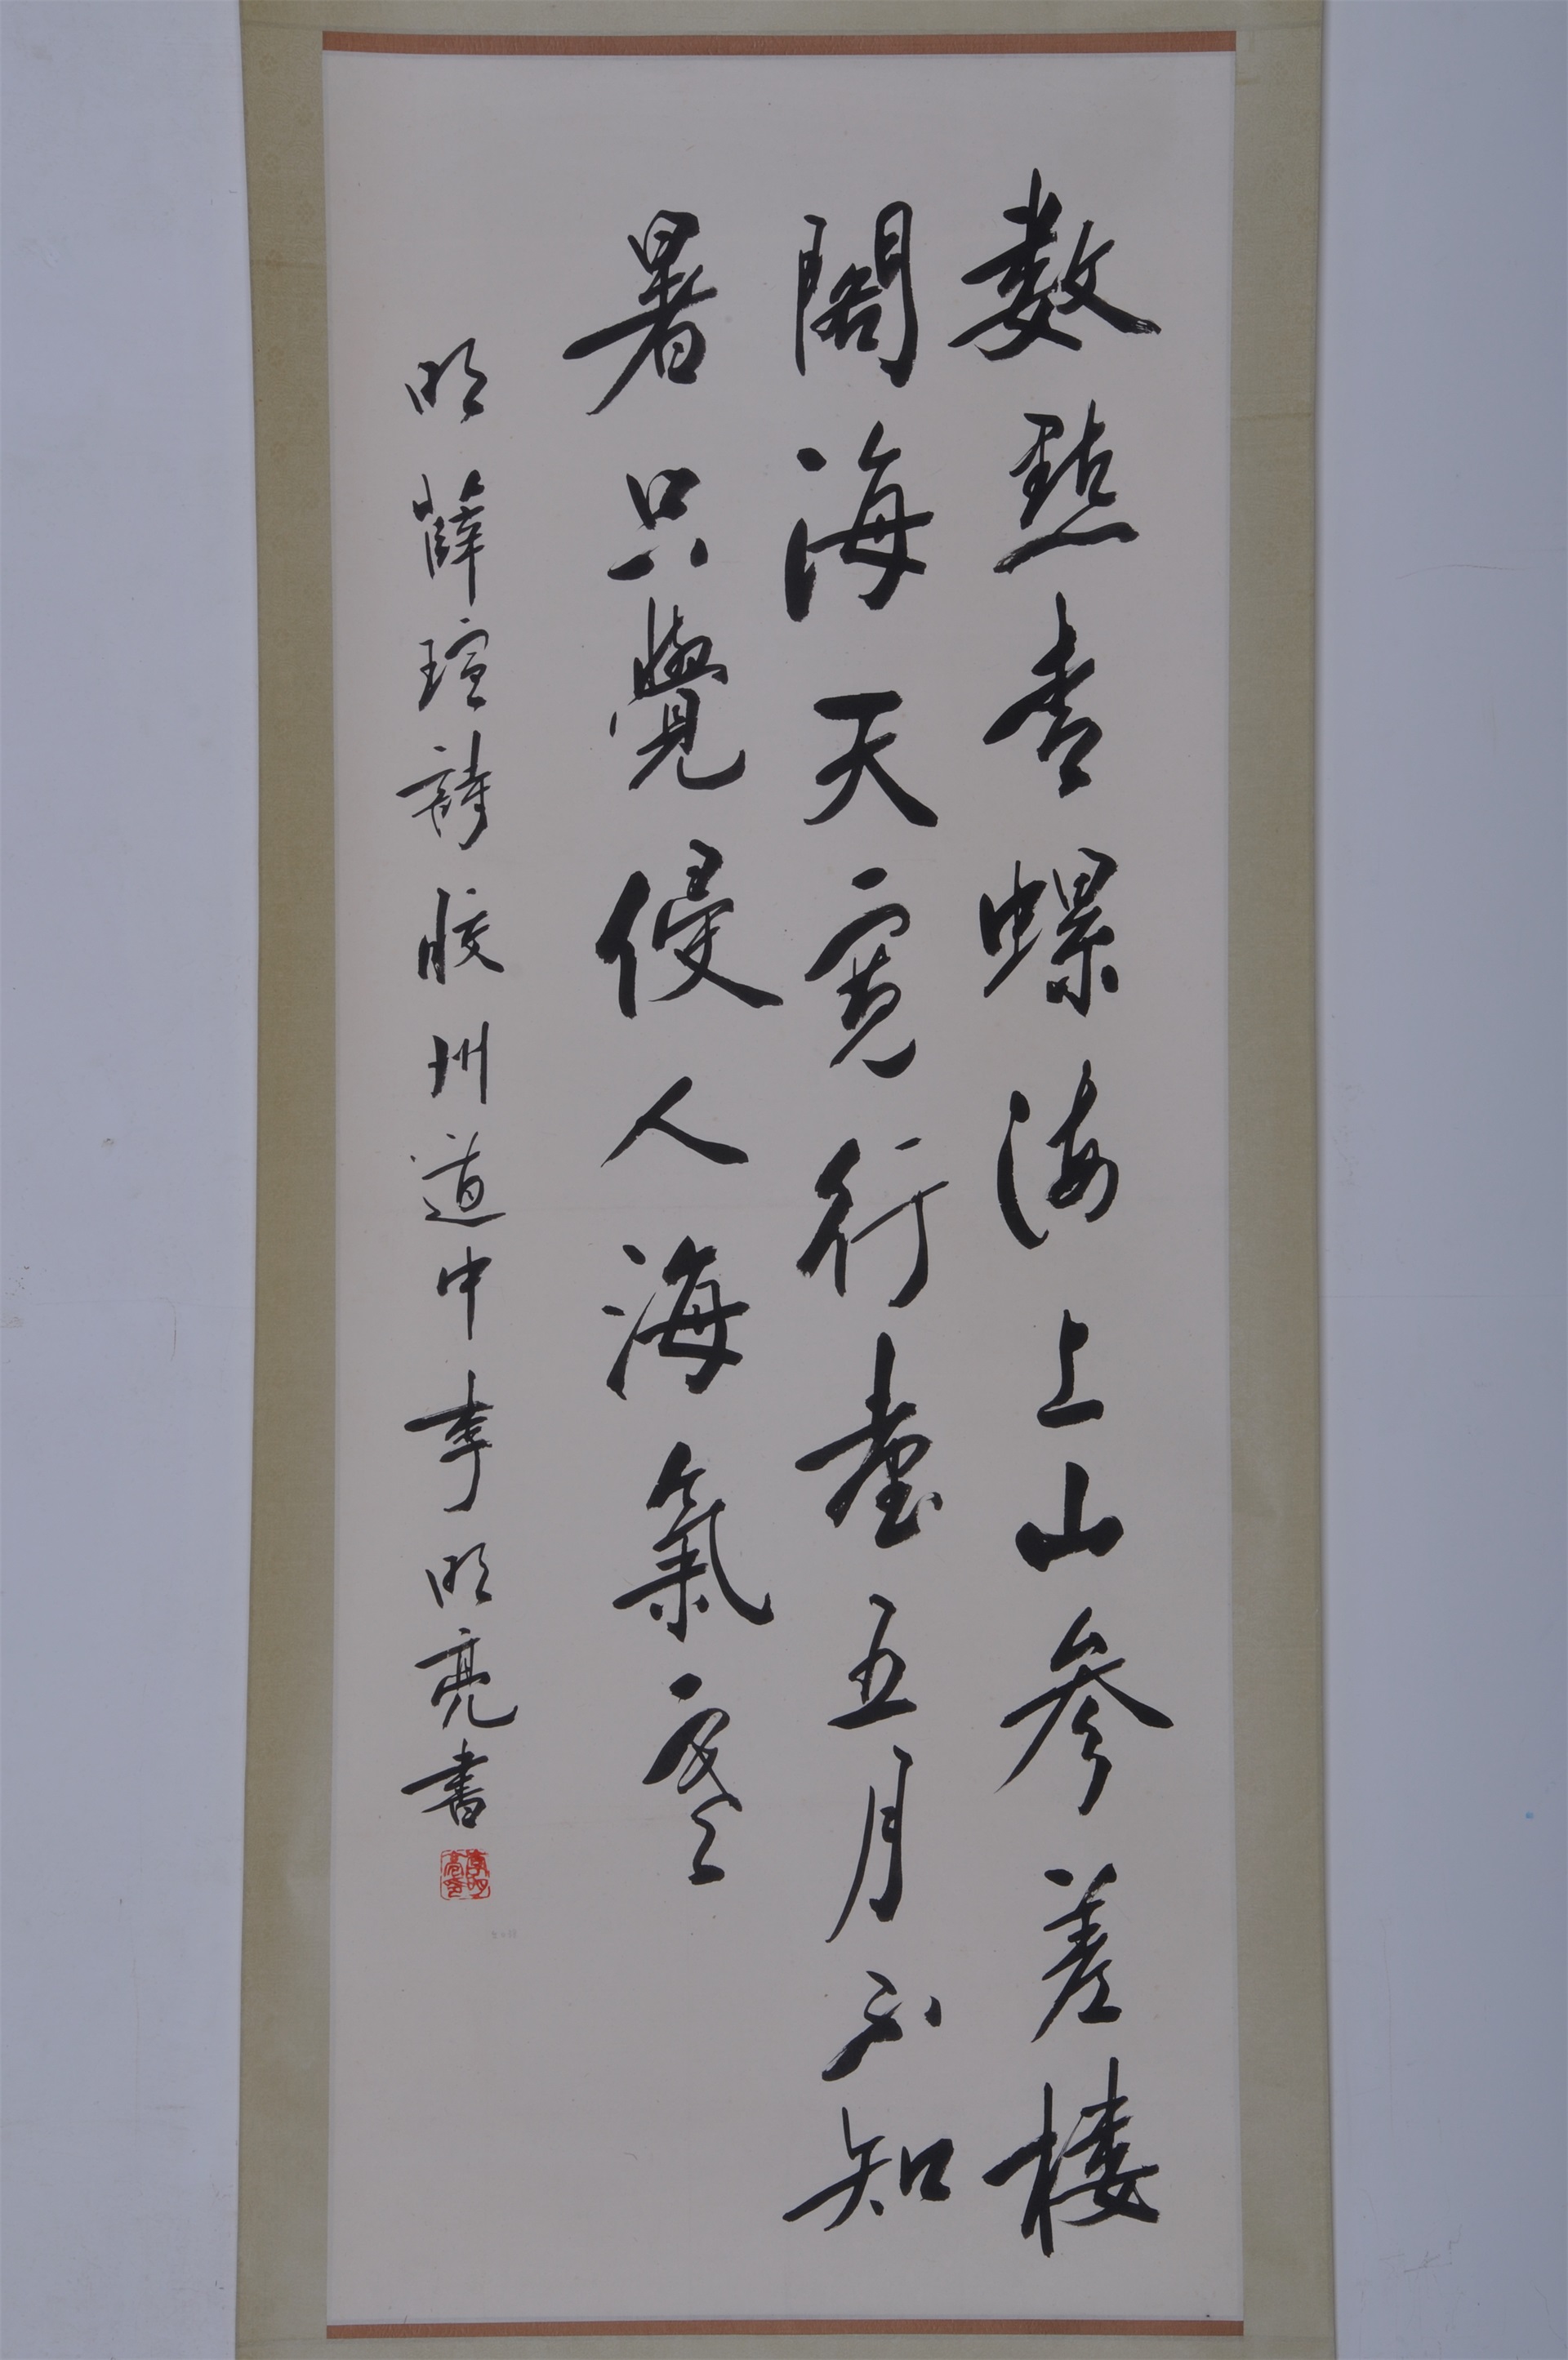 數點青螺海上山參差樓
閣海天寬行臺五月不知
暑只覺侵人海氣寒
明薛瑄詩膠州道中李明亮書
李明亮印